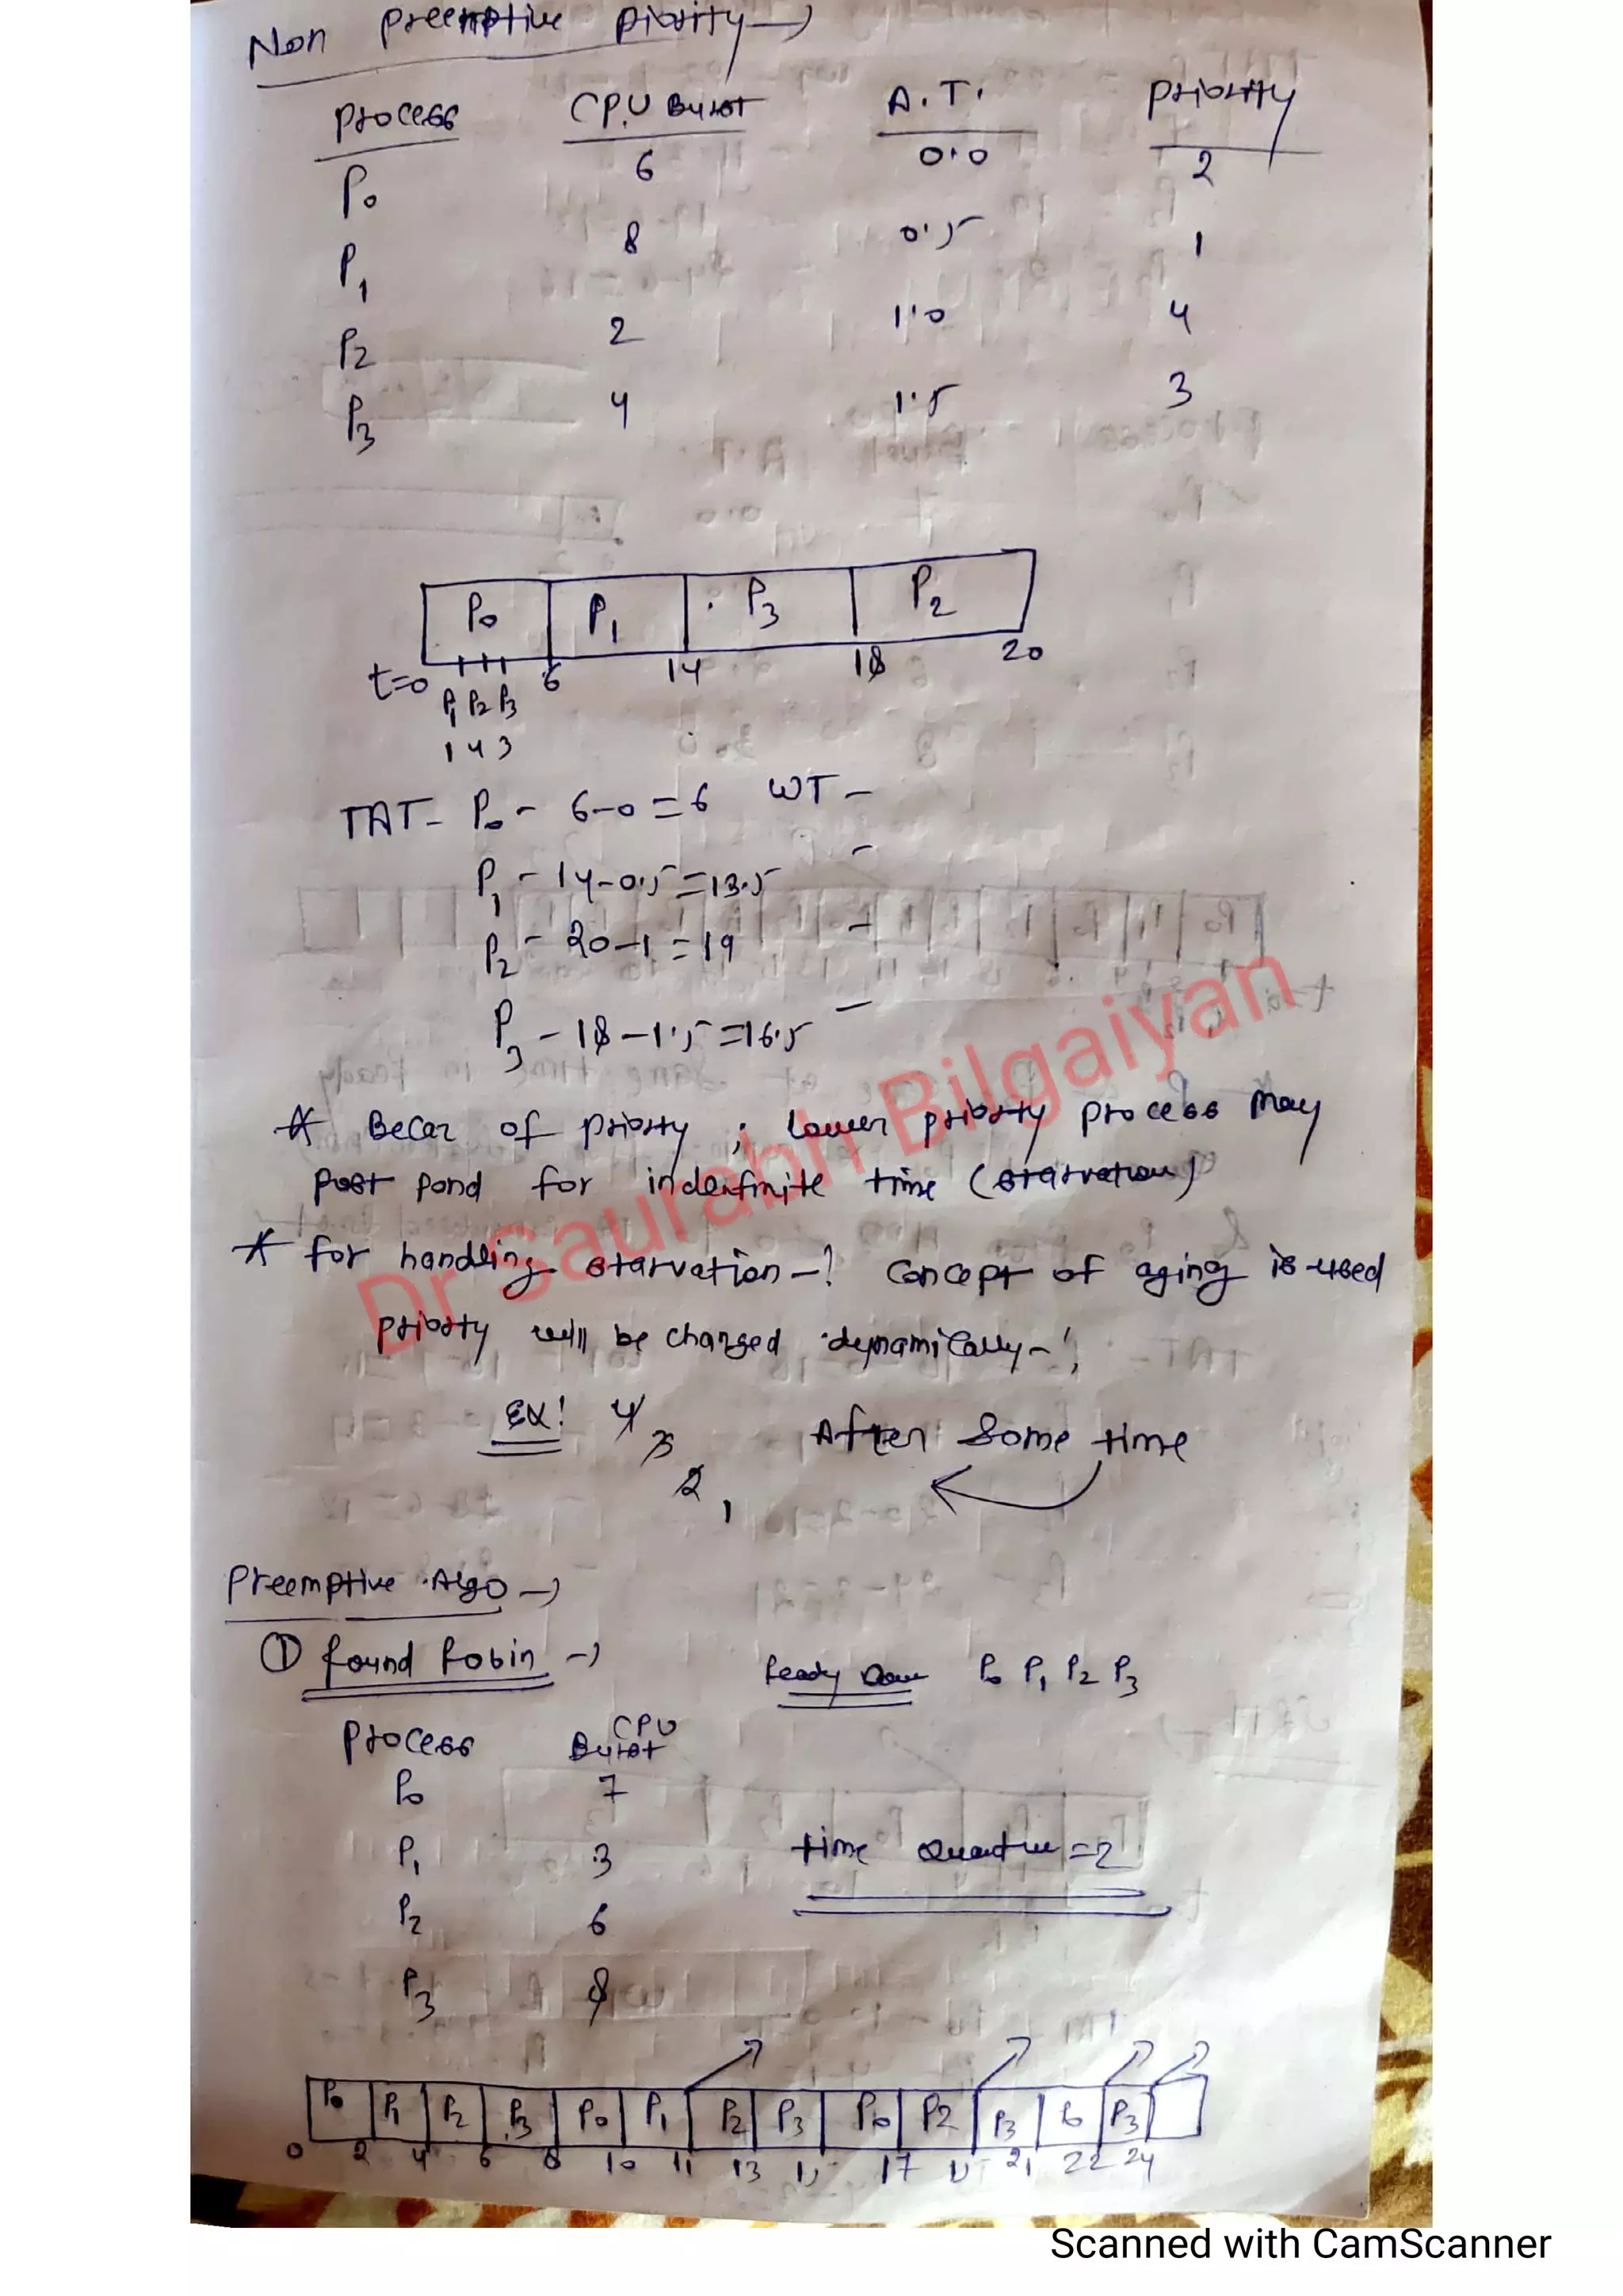 Non Preemptive Piority →
Process CPU Burst A.T. Priority
P0 6 0.0 2
P1 8 0.5 1
P2 2 1.0 4
P3 4 1.5 3
P0 P1 P3 P2
t=0 6 14 18 20
P1 P2 P3
1 4 3
TAT - P0 - 6-0=6 WT -
P1 - 14-0.5=13.5 -
P2 - 20-1=19 -
P3 - 18-1.5=16.5 -
* Becaz of Priorty ; Lower priorty process may
post pond for indenfinite time (starvation)
* for handling starvation -! Concept of aging is used
Priorty will be changed dynamically -!
EX! 4 3 2 1 After Some time
Preemptive Algo →
① Round Robin → Ready P0 P1 P2 P3
Process CPU Burst
P0 7
P1 3 time Quantum = 2
P2 6
P3 8
P0 P1 P2 P3 P0 P1 P2 P3 P0 P2 P3 P0 P3
0 2 4 6 8 10 11 13 15 17 21 22 24
Dr Saurabh Bilgaiyan
Scanned with CamScanner